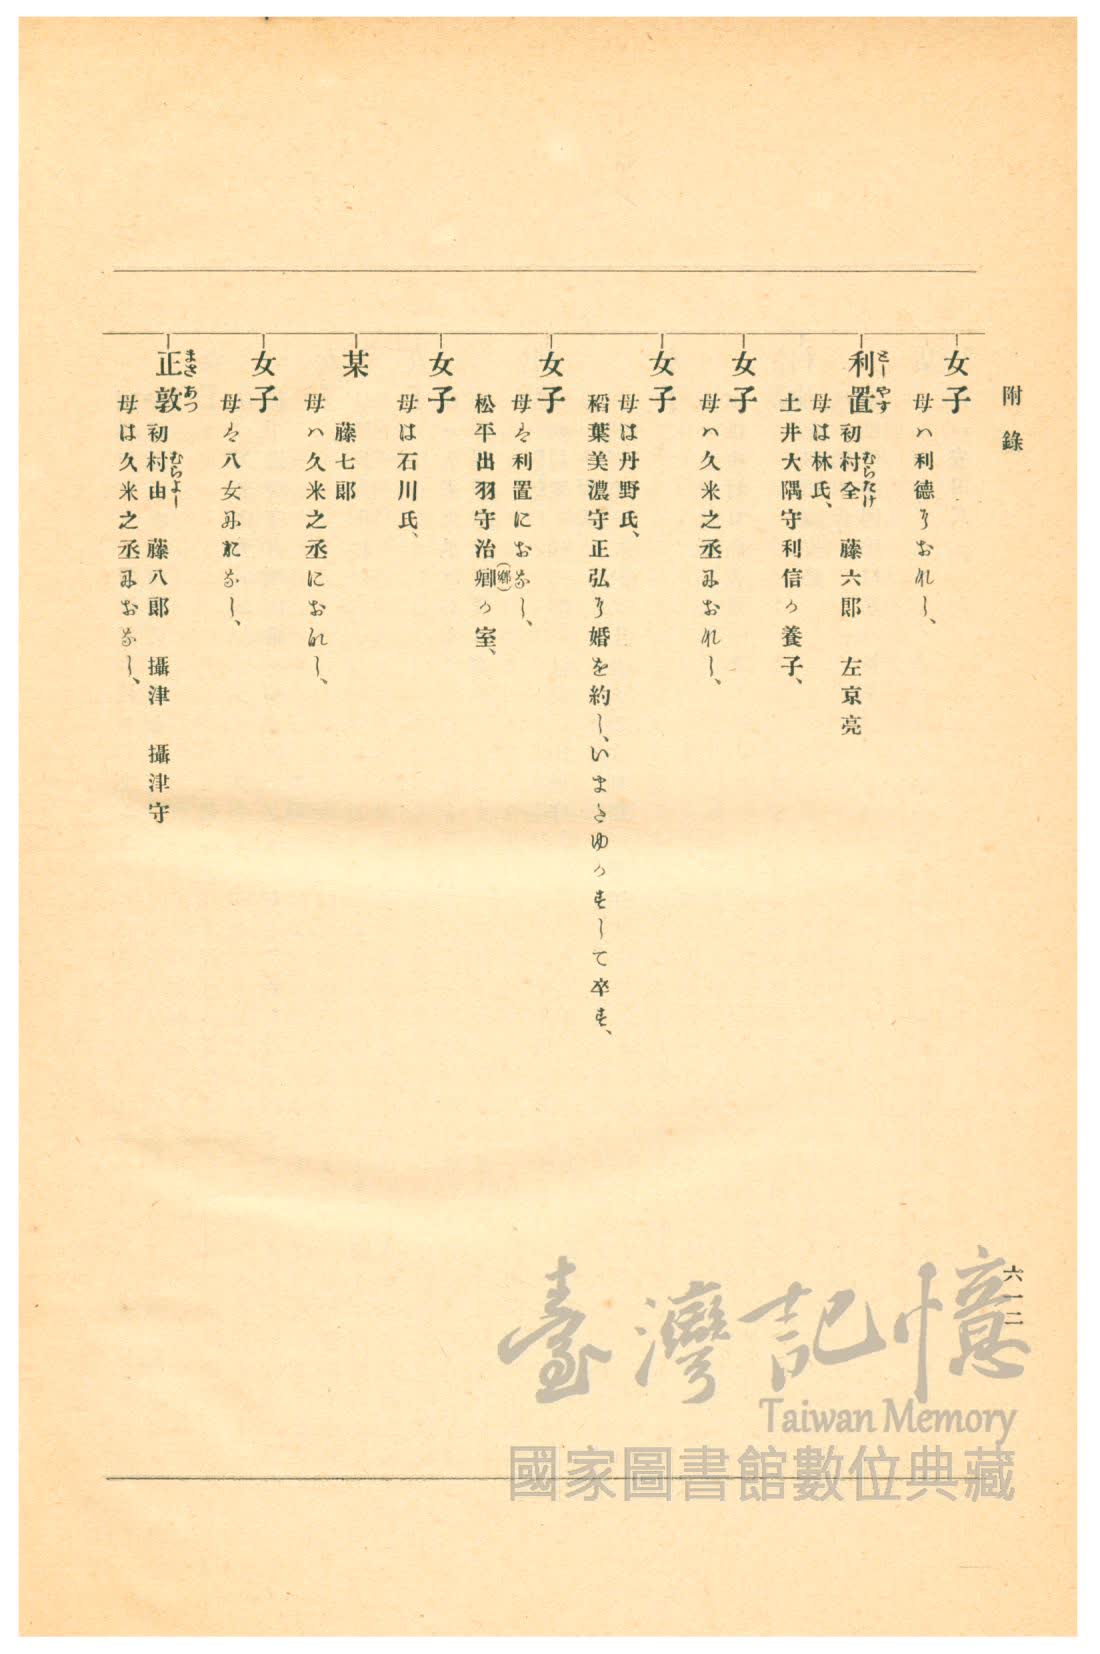 附錄
女子
母ハ利德におなし、
利置 初村全 藤六郎 左京亮
としやす
むらたけ
母は林氏、
土井大隅守利信か養子、
女子
母ハ久米之丞におなし、
女子
母は丹野氏、
稻葉美濃守正弘に婚を約し、いまたゆかすして卒す、
女子
母は利置におなし、
松平出羽守治鄕(鄕)か室、
女子
母は石川氏、
某
藤七郎
母ハ久米之丞におなし、
女子
母は八女におなし、
正敦 初村由 藤八郎 攝津 攝津守
まさあつ
むらよし
母は久米之丞におなし、
六一二
臺灣記憶
Taiwan Memory
國家圖書館數位典藏